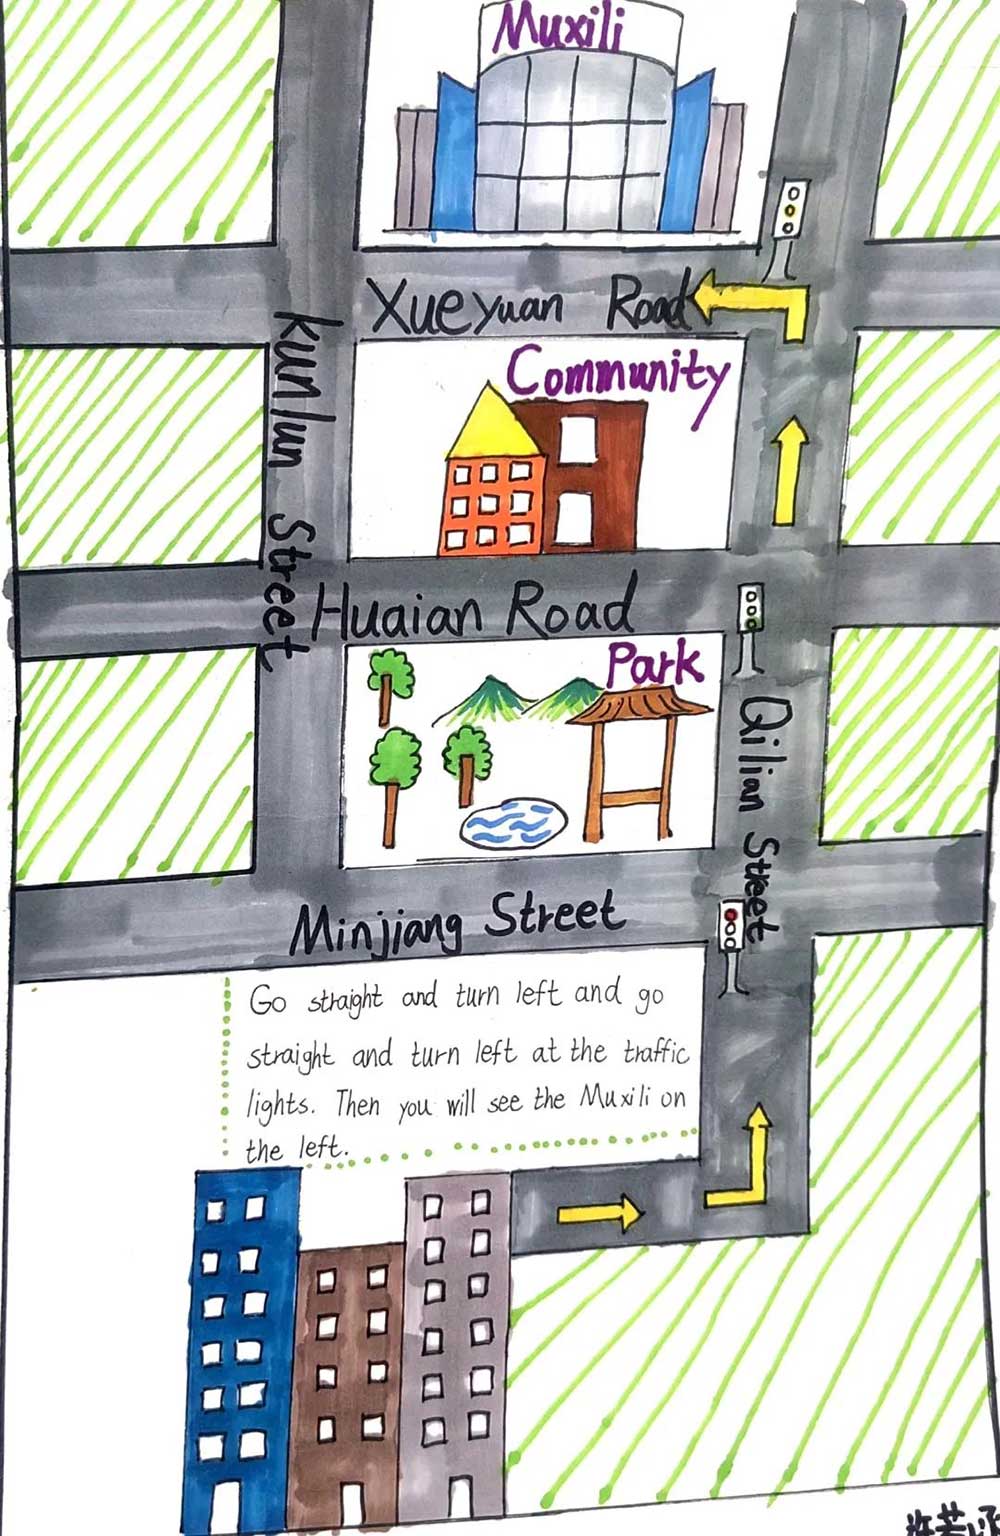 Muxili
Xueyuan Road
Community
Kunlun Street
Huaian Road
Park
Qilian Street
Minjiang Street
Go straight and turn left and go
straight and turn left at the traffic
lights. Then you will see the Muxili on
the left.